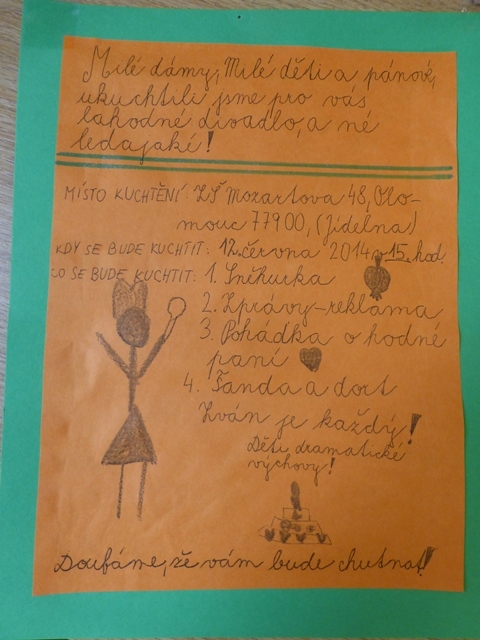 Milé dámy, Milé děti a pánové,
ukuchtili jsme pro vás
lahodné divadlo, a né
ledajaké!
MÍSTO KUCHTĚNÍ: ZŠ Mozartova 48, Olo-
mouc 77900, (Jídelna)
KDY SE BUDE KUCHTIT: 12. června 2014 v 15. hod.
CO SE BUDE KUCHTIT: 1. Sněhurka
2. Zprávy-reklama
3. Pohádka o hodné
paní
4. Fanda a dort
Zván je každý!
Děti dramatické
výchovy!
Doufáme, že vám bude chutnat!